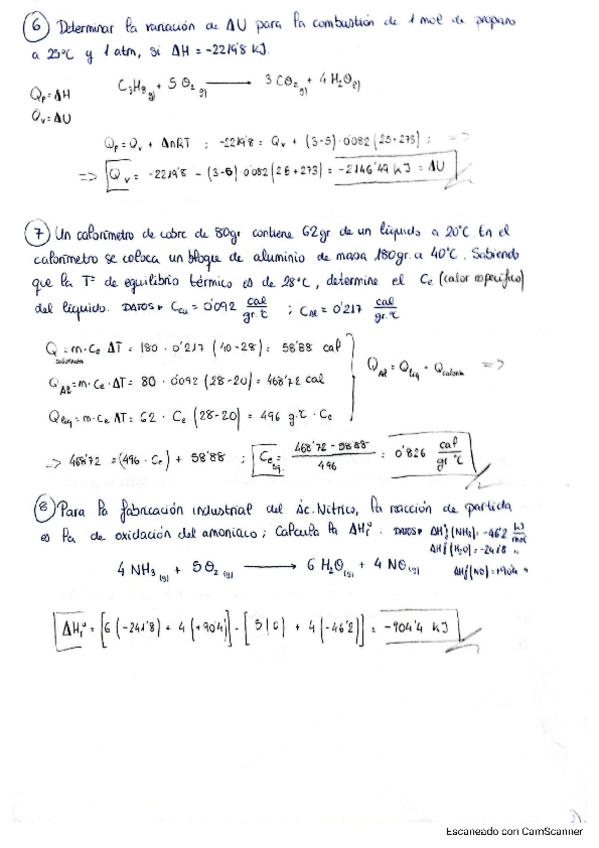 ⑥ Determinar la variación de ΔU para la combustión de 1 mol de propano
a 25°C y 1 atm, si ΔH = -2219'8 KJ.
Qp = ΔH
Qv = ΔU
C3H8(g) + 5 O2(g) ⟶ 3 CO2(g) + 4 H2O(l)
Qp = Qv + ΔnRT ; -2219'8 = Qv + (3-5)·0'082 (25+273) ; =>
=> Qv = -2219'8 - (3-5)·0'082 (25+273) = -2146'49 KJ = ΔU
⑦ Un calorímetro de cobre de 80gr contiene 62gr de un líquido a 20°C. En el
calorímetro se coloca un bloque de aluminio de masa 180gr. a 40°C. Sabiendo
que la Tª de equilibrio térmico es de 28°C, determine el Ce (calor específico)
del líquido. DATOS: Ccu = 0'092 cal/gr.°C ; CAl = 0'217 cal/gr.°C
Q = m·Ce ΔT = 180 · 0'217 (40-28) = 58'88 cal
QAl = m·Ce·ΔT = 80 · 0'092 (28-20) = 468'72 cal
QAl = Qliq + Qcalorím =>
Qliq = m·Ce ΔT = 62 · Ce (28-20) = 496 g.°C · Ce
=> 468'72 = (496 · Ce) + 58'88 ; Ce liq = 468'72 - 58'88 / 496 = 0'826 cal/gr °C
⑧ Para la fabricación industrial del Ác. Nítrico, la reacción de partida
es la de oxidación del amoniaco; Calcula la ΔHrº. DATOS: ΔHfº(NH3) = -46'2 kJ/mol
ΔHfº(H2O) = -241'8 "
4 NH3(g) + 5O2(g) ⟶ 6 H2O(g) + 4 NO(g) ΔHfº(NO) = +90'4 "
ΔHrº = [6 (-241'8) + 4 (+90'4)] - [5(0) + 4(-46'2)] = -904'4 KJ
Escaneado con CamScanner